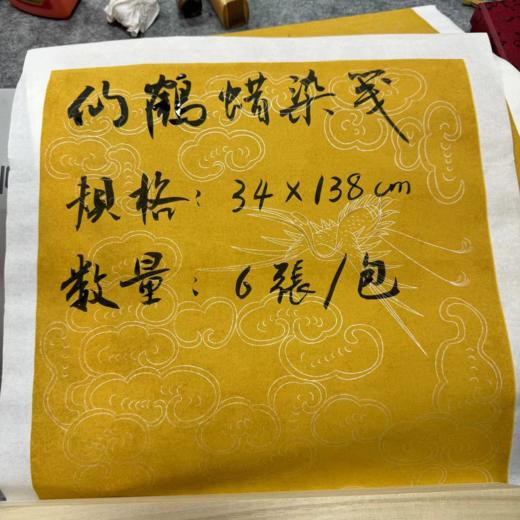 仙鶴蜡染笺
規格：34×138cm
数量：6張/包